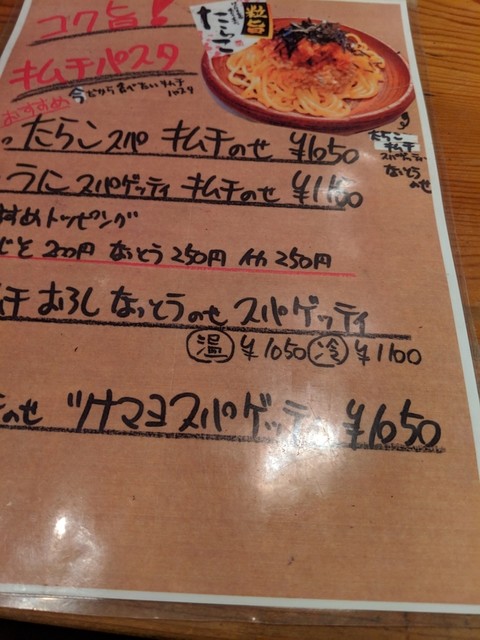 コク旨!
粒旨
たらこ
キムチパスタ
おすすめ 今だから食べたいキムチパスタ
たらこスパ キムチのせ ¥1050
たらこ
キムチ
スパゲッティ
なっとう
のせ
うにスパゲッティ キムチのせ ¥1150
すすめトッピング
じそ 200円 なっとう 250円 イカ 250円
ムチ おろし なっとうのせ スパゲッティ
温 ¥1050 冷 ¥1100
のせ ツナマヨスパゲッティ ¥1050